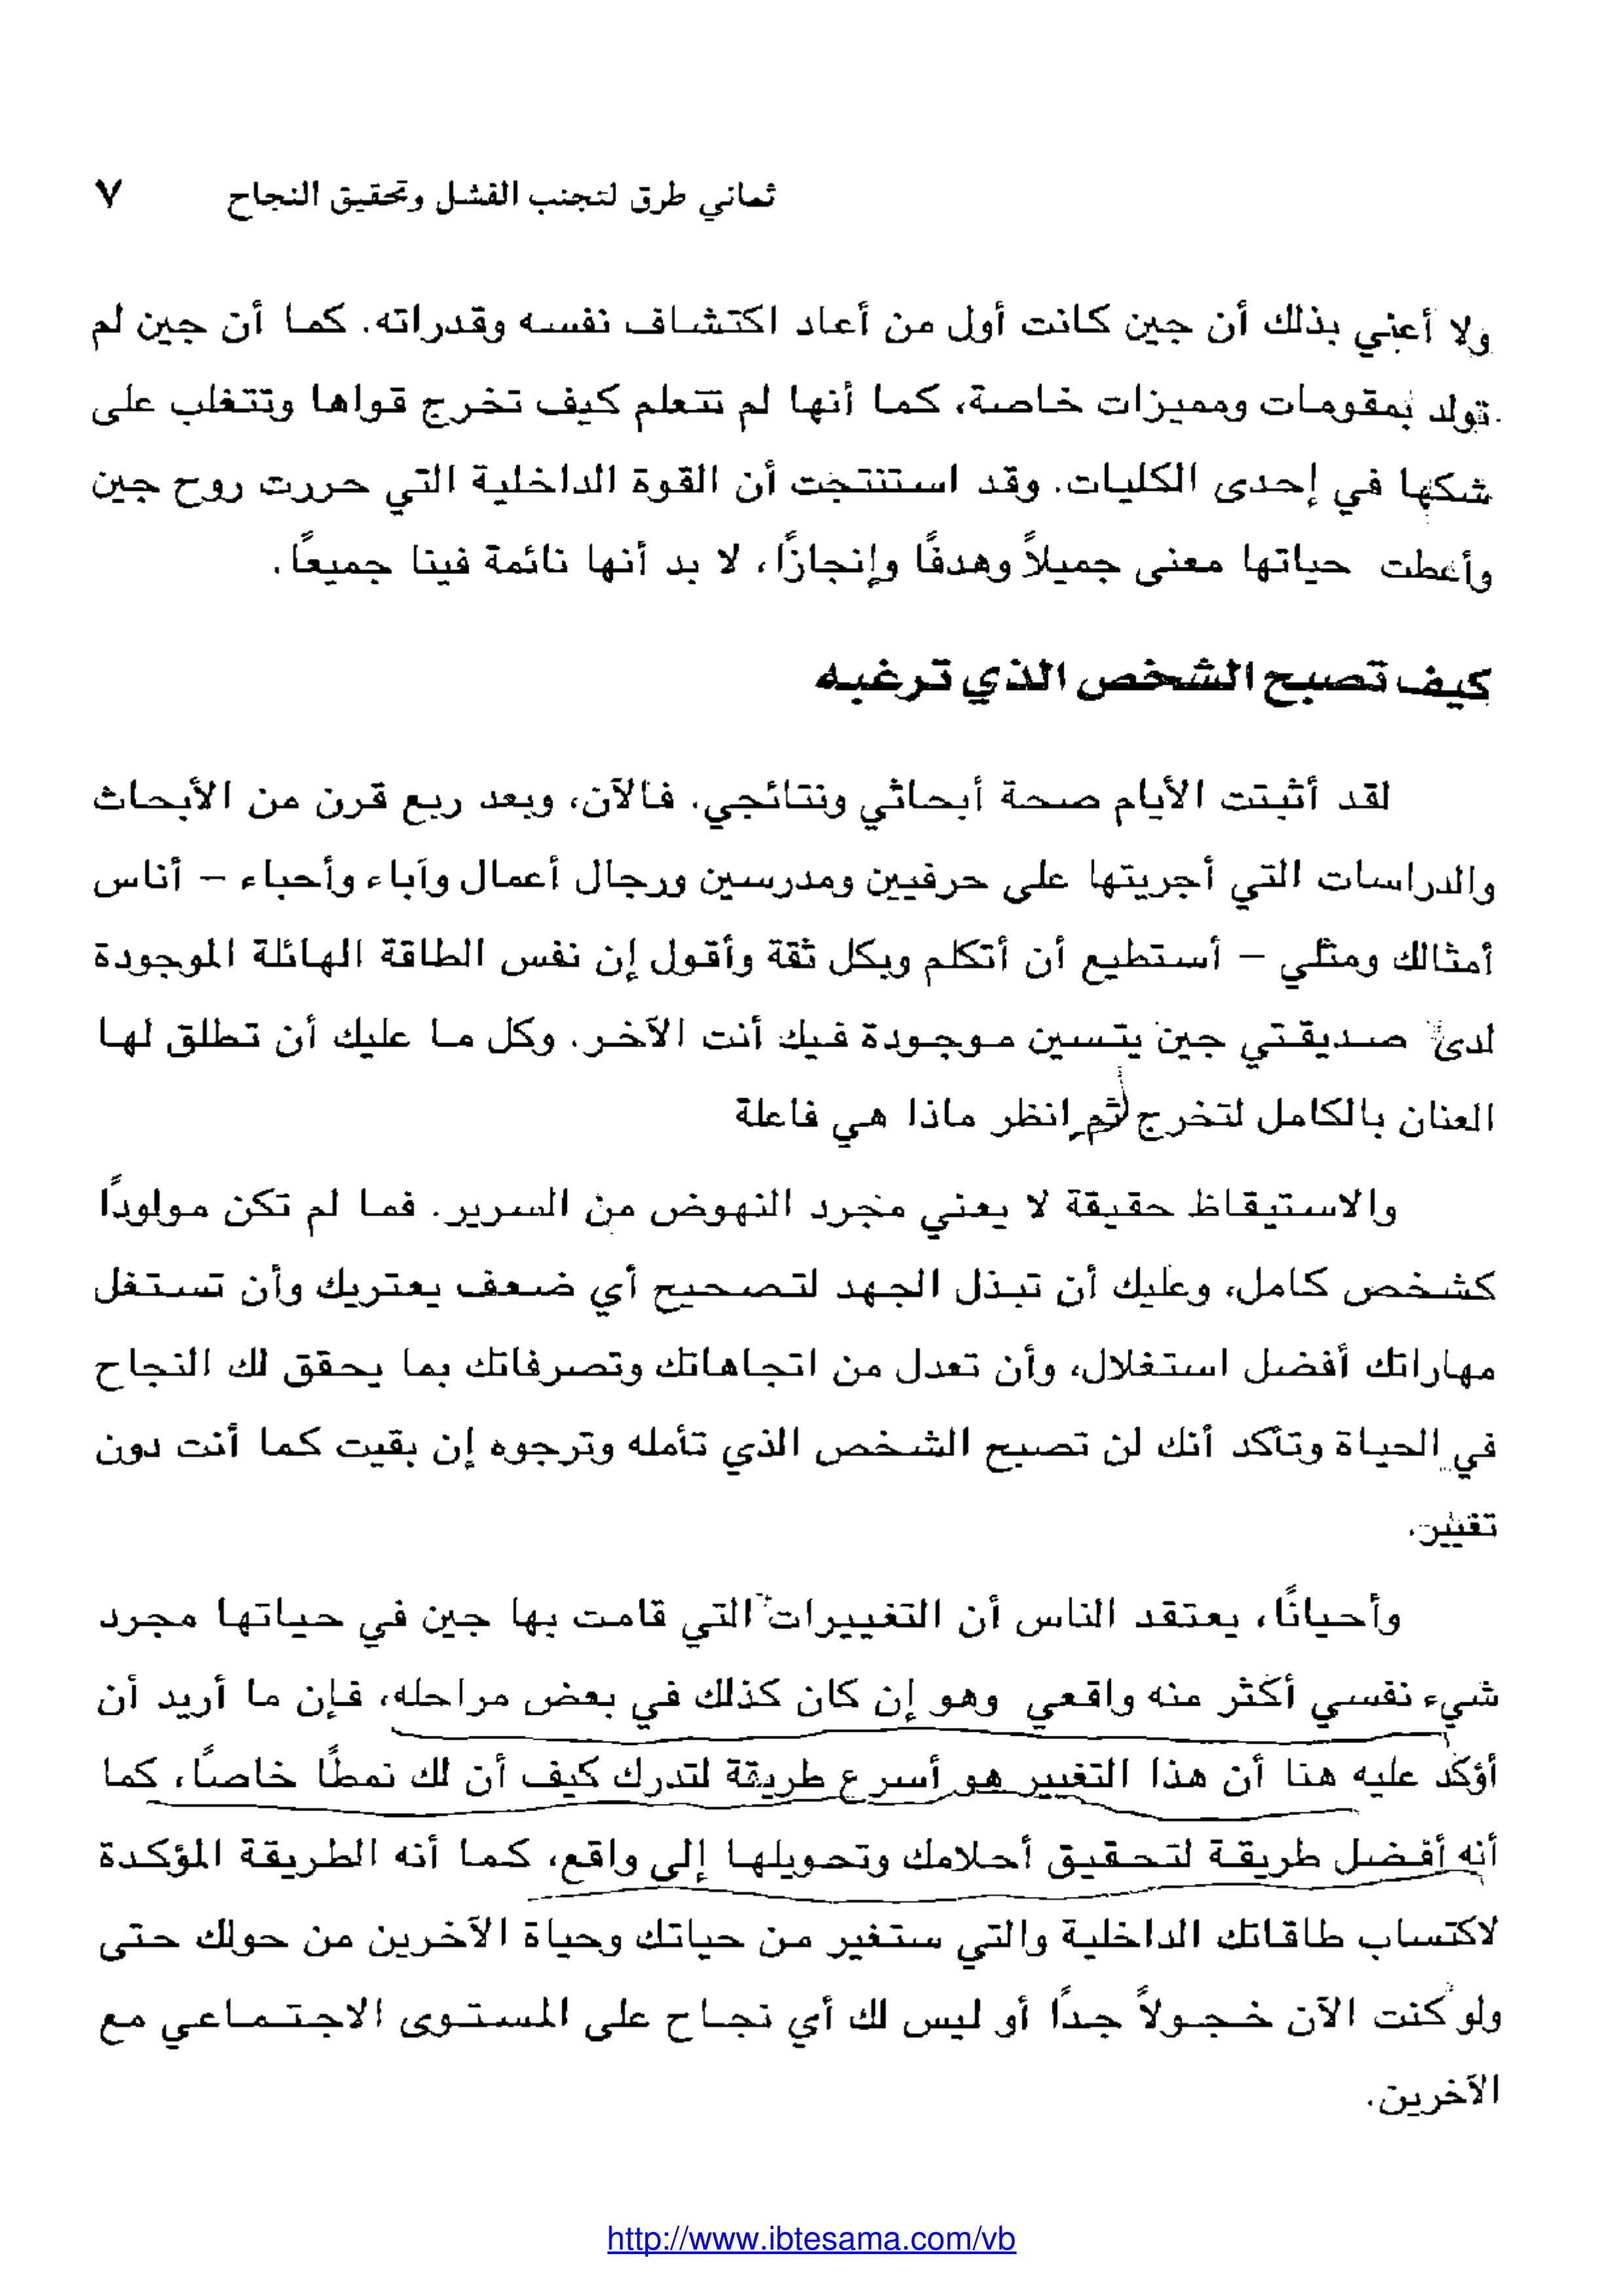 ثماني طرق لتجنب الفشل وتحقيق النجاح ٧
ولا أعني بذلك أن جين كانت أول من أعاد اكتشاف نفسه وقدراته. كما أن جين لم
تولد بمقومات ومميزات خاصة، كما أنها لم تتعلم كيف تخرج قواها وتتغلب على
شكها في إحدى الكليات. وقد استنتجت أن القوة الداخلية التي حررت روح جين
وأعطت حياتها معنى جميلاً وهدفًا وإنجازًا، لا بد أنها نائمة فينا جميعًا.
كيف تصبح الشخص الذي ترغبه
لقد أثبتت الأيام صحة أبحاثي ونتائجي. فالآن، وبعد ربع قرن من الأبحاث
والدراسات التي أجريتها على حرفيين ومدرسين ورجال أعمال وآباء وأحباء – أناس
أمثالك ومثلي – أستطيع أن أتكلم وبكل ثقة وأقول إن نفس الطاقة الهائلة الموجودة
لدى صديقتي جين يتسين موجودة فيك أنت الآخر. وكل ما عليك أن تطلق لها
العنان بالكامل لتخرج ثم انظر ماذا هي فاعلة
والاستيقاظ حقيقة لا يعني مجرد النهوض من السرير. فما لم تكن مولودًا
كشخص كامل، وعليك أن تبذل الجهد لتصحيح أي ضعف يعتريك وأن تستغل
مهاراتك أفضل استغلال، وأن تعدل من اتجاهاتك وتصرفاتك بما يحقق لك النجاح
في الحياة وتأكد أنك لن تصبح الشخص الذي تأمله وترجوه إن بقيت كما أنت دون
تغيير.
وأحيانًا، يعتقد الناس أن التغييرات التي قامت بها جين في حياتها مجرد
شيء نفسي أكثر منه واقعي وهو إن كان كذلك في بعض مراحله، فإن ما أريد أن
أؤكد عليه هنا أن هذا التغيير هو أسرع طريقة لتدرك كيف أن لك نمطًا خاصًا، كما
أنه أفضل طريقة لتحقيق أحلامك وتحويلها إلى واقع، كما أنه الطريقة المؤكدة
لاكتساب طاقاتك الداخلية والتي ستغير من حياتك وحياة الآخرين من حولك حتى
ولو كنت الآن خجولاً جدًا أو ليس لك أي نجاح على المستوى الاجتماعي مع
الآخرين.
http://www.ibtesama.com/vb